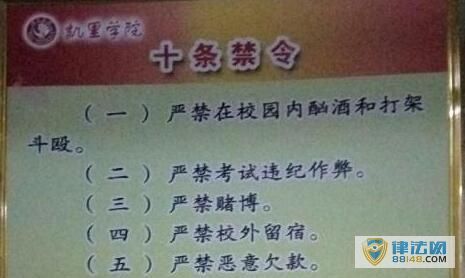 凯里学院
十条禁令
（一）严禁在校园内酗酒和打架
斗殴。
（二）严禁考试违纪作弊。
（三）严禁赌博。
（四）严禁校外留宿。
（五）严禁恶意欠款。
律法网
88148.com